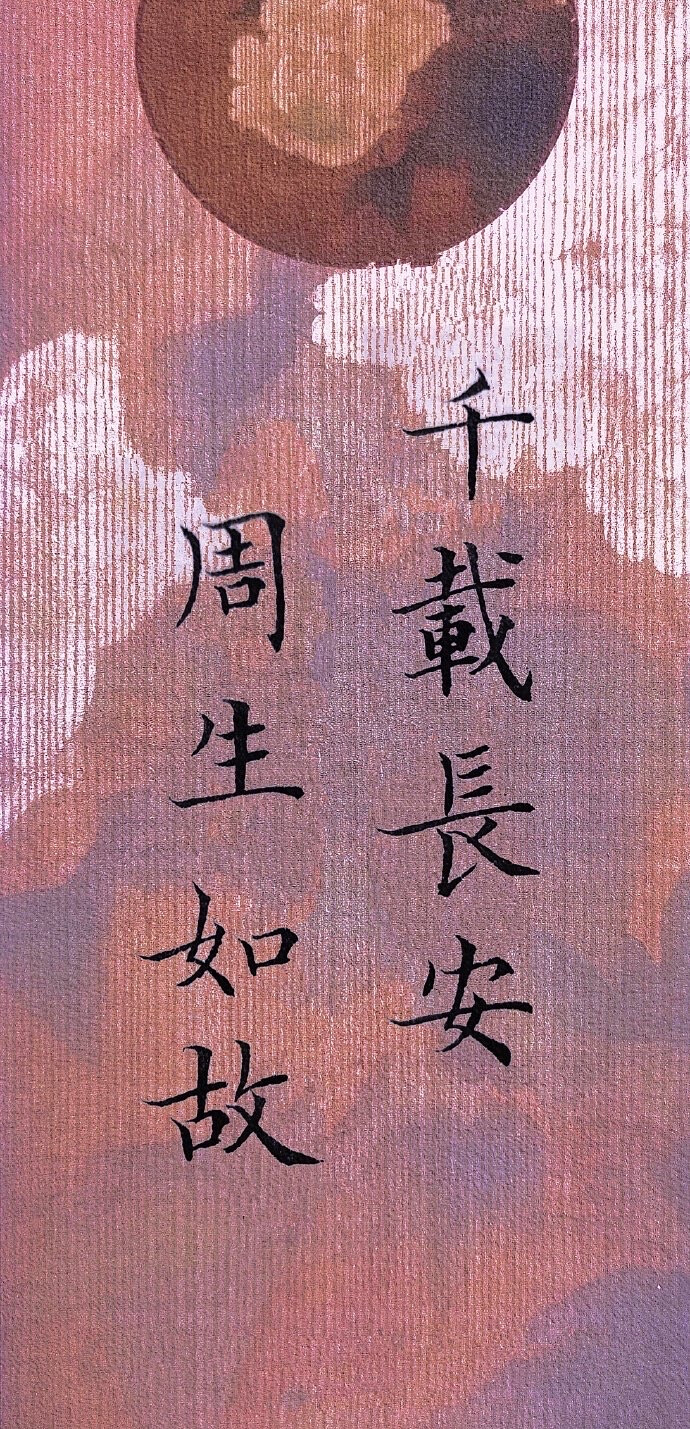 千載長安
周生如故